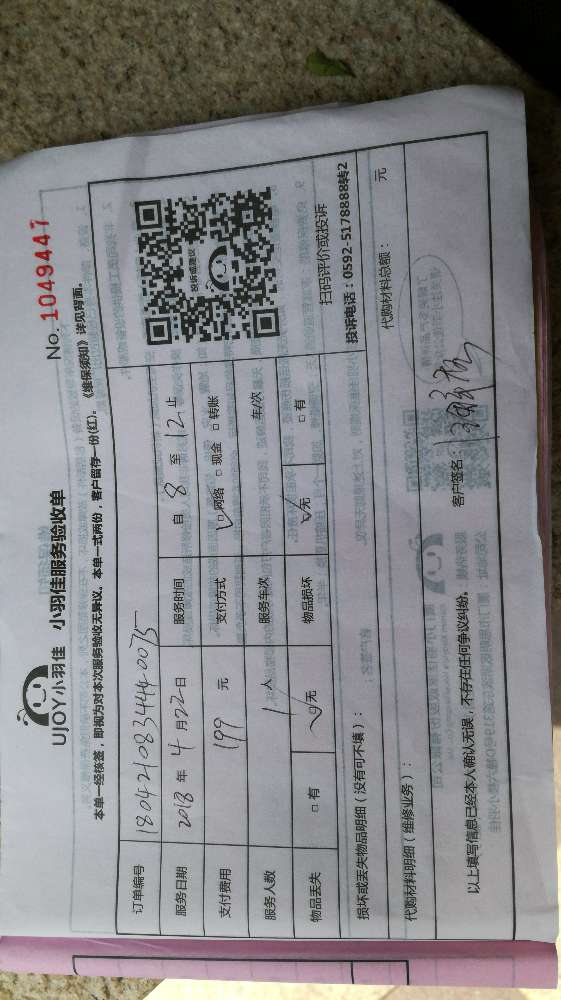 UJOY小羽佳 小羽佳服务验收单
No. 1049447
本单一经核签，即视为对本次服务验收无异议。本单一式两份，客户留存一份(红)。《维保须知》详见背面。
订单编号 180421083444-0075
服务日期 2018 年 4 月 22 日 服务时间 自 8 至 12 止
支付费用 199 元 支付方式 ☑网络 □现金 □转账
服务人数 1 人 服务车次 车/次
物品丢失 □有 ☑无 物品损坏 ☑无 □有
投诉或建议
扫码评价或投诉
投诉电话：0592-5178888转2
损坏或丢失物品明细（没有可不填）：
代购材料明细（维修业务）： 代购材料总额： 元
以上填写信息已经本人确认无误，不存在任何争议纠纷。 客户签名：